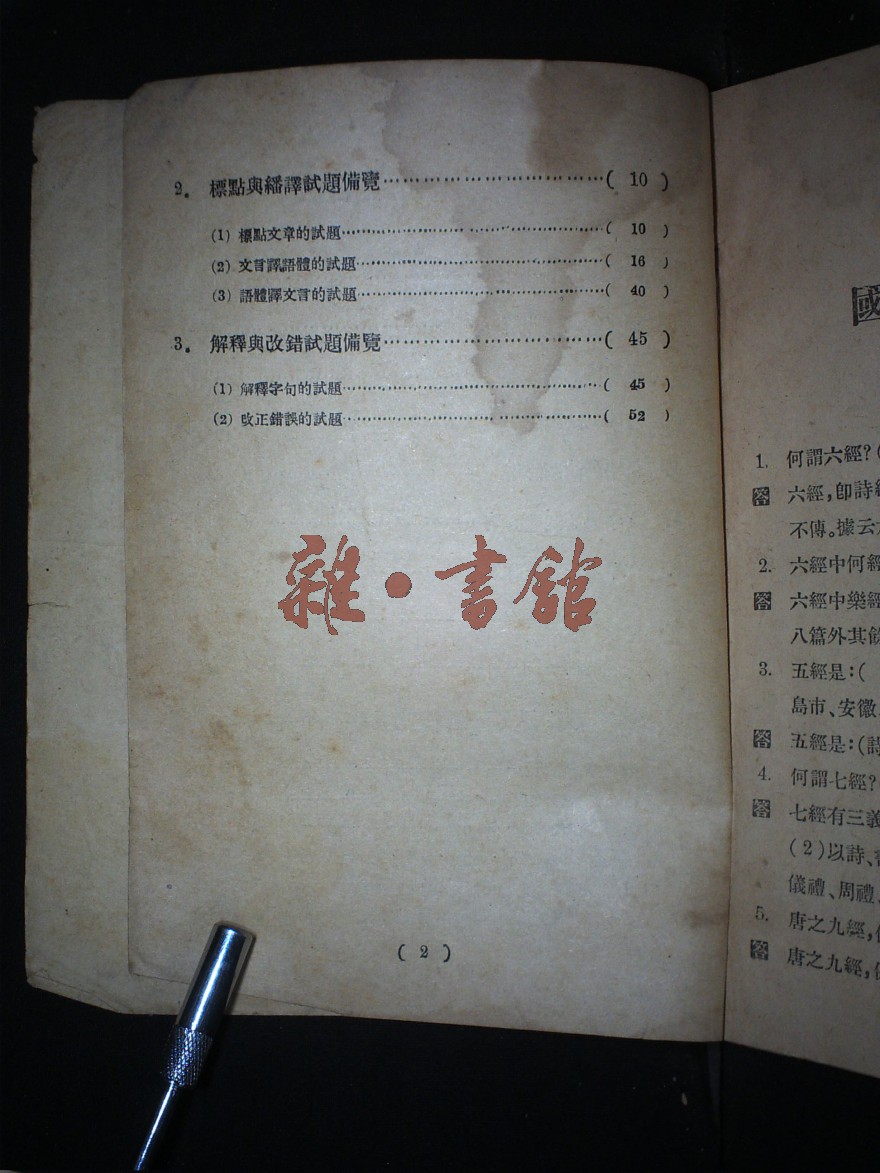 2. 標點與繙譯試題備覽……………………………( 10 )
(1) 標點文章的試題……………………………( 10 )
(2) 文言譯語體的試題……………………………( 16 )
(3) 語體譯文言的試題……………………………( 40 )
3. 解釋與改錯試題備覽……………………………( 45 )
(1) 解釋字句的試題……………………………( 45 )
(2) 改正錯誤的試題……………………………( 52 )
雜•書館
( 2 )
國
1. 何謂六經?(
答 六經,即詩
不傳。據云
2. 六經中何經
答 六經中樂經
八篇外其餘
3. 五經是:(
島市、安徽
答 五經是:(詩
4. 何謂七經?
答 七經有三義
(2)以詩、
儀禮、周禮、
5. 唐之九經,
答 唐之九經,